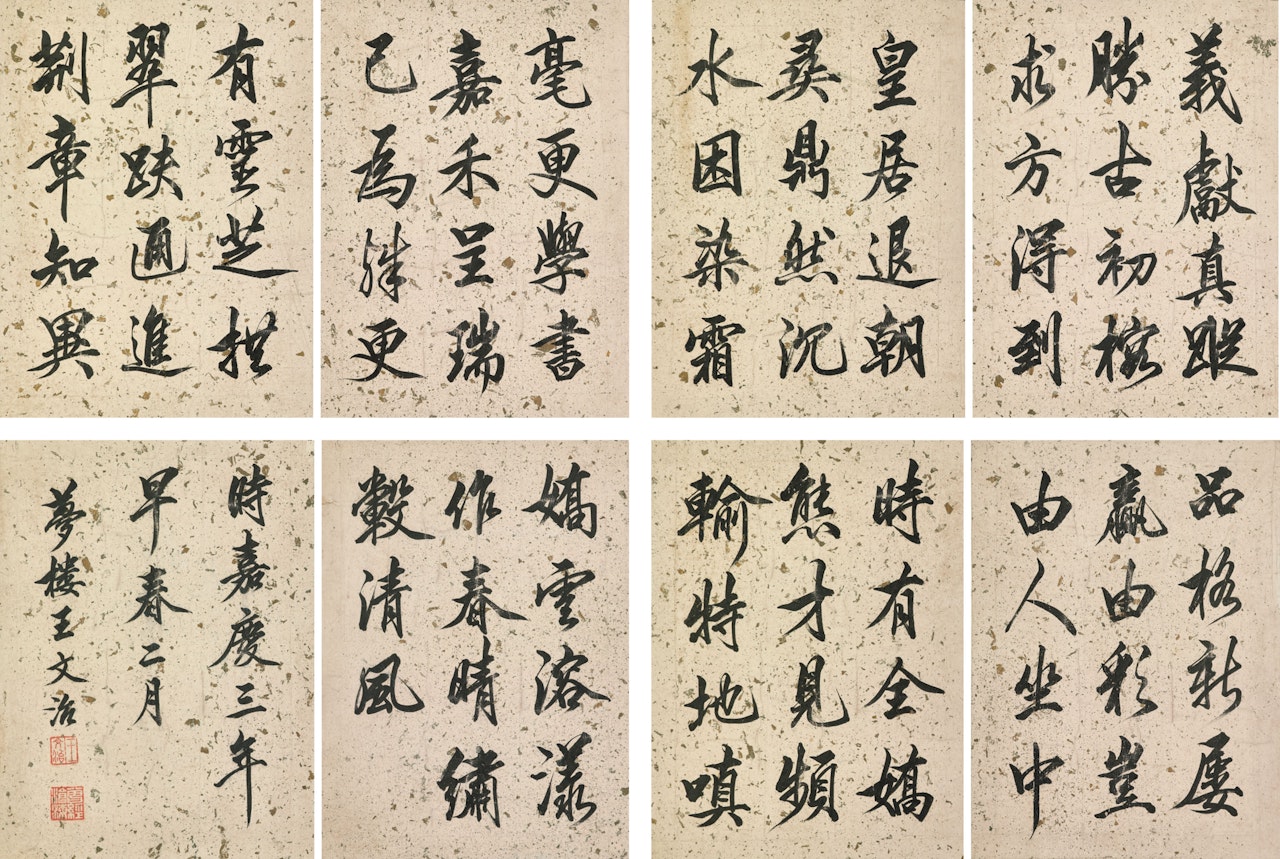 羲獻真蹤
勝古初
求方得到
皇居退朝
彛鼎然沉
水因染霜
毫更學書
嘉禾呈瑞
已為殊更
有靈芝拱
翠趺迺進
荆章知異
品格新屢
贏由彩豈
由人坐中
時有全嬌
熊才見頻
輸特地嗔
嬌雲溶漾
作春晴繡
縠清風
時嘉慶三年
早春二月
夢樓王文治